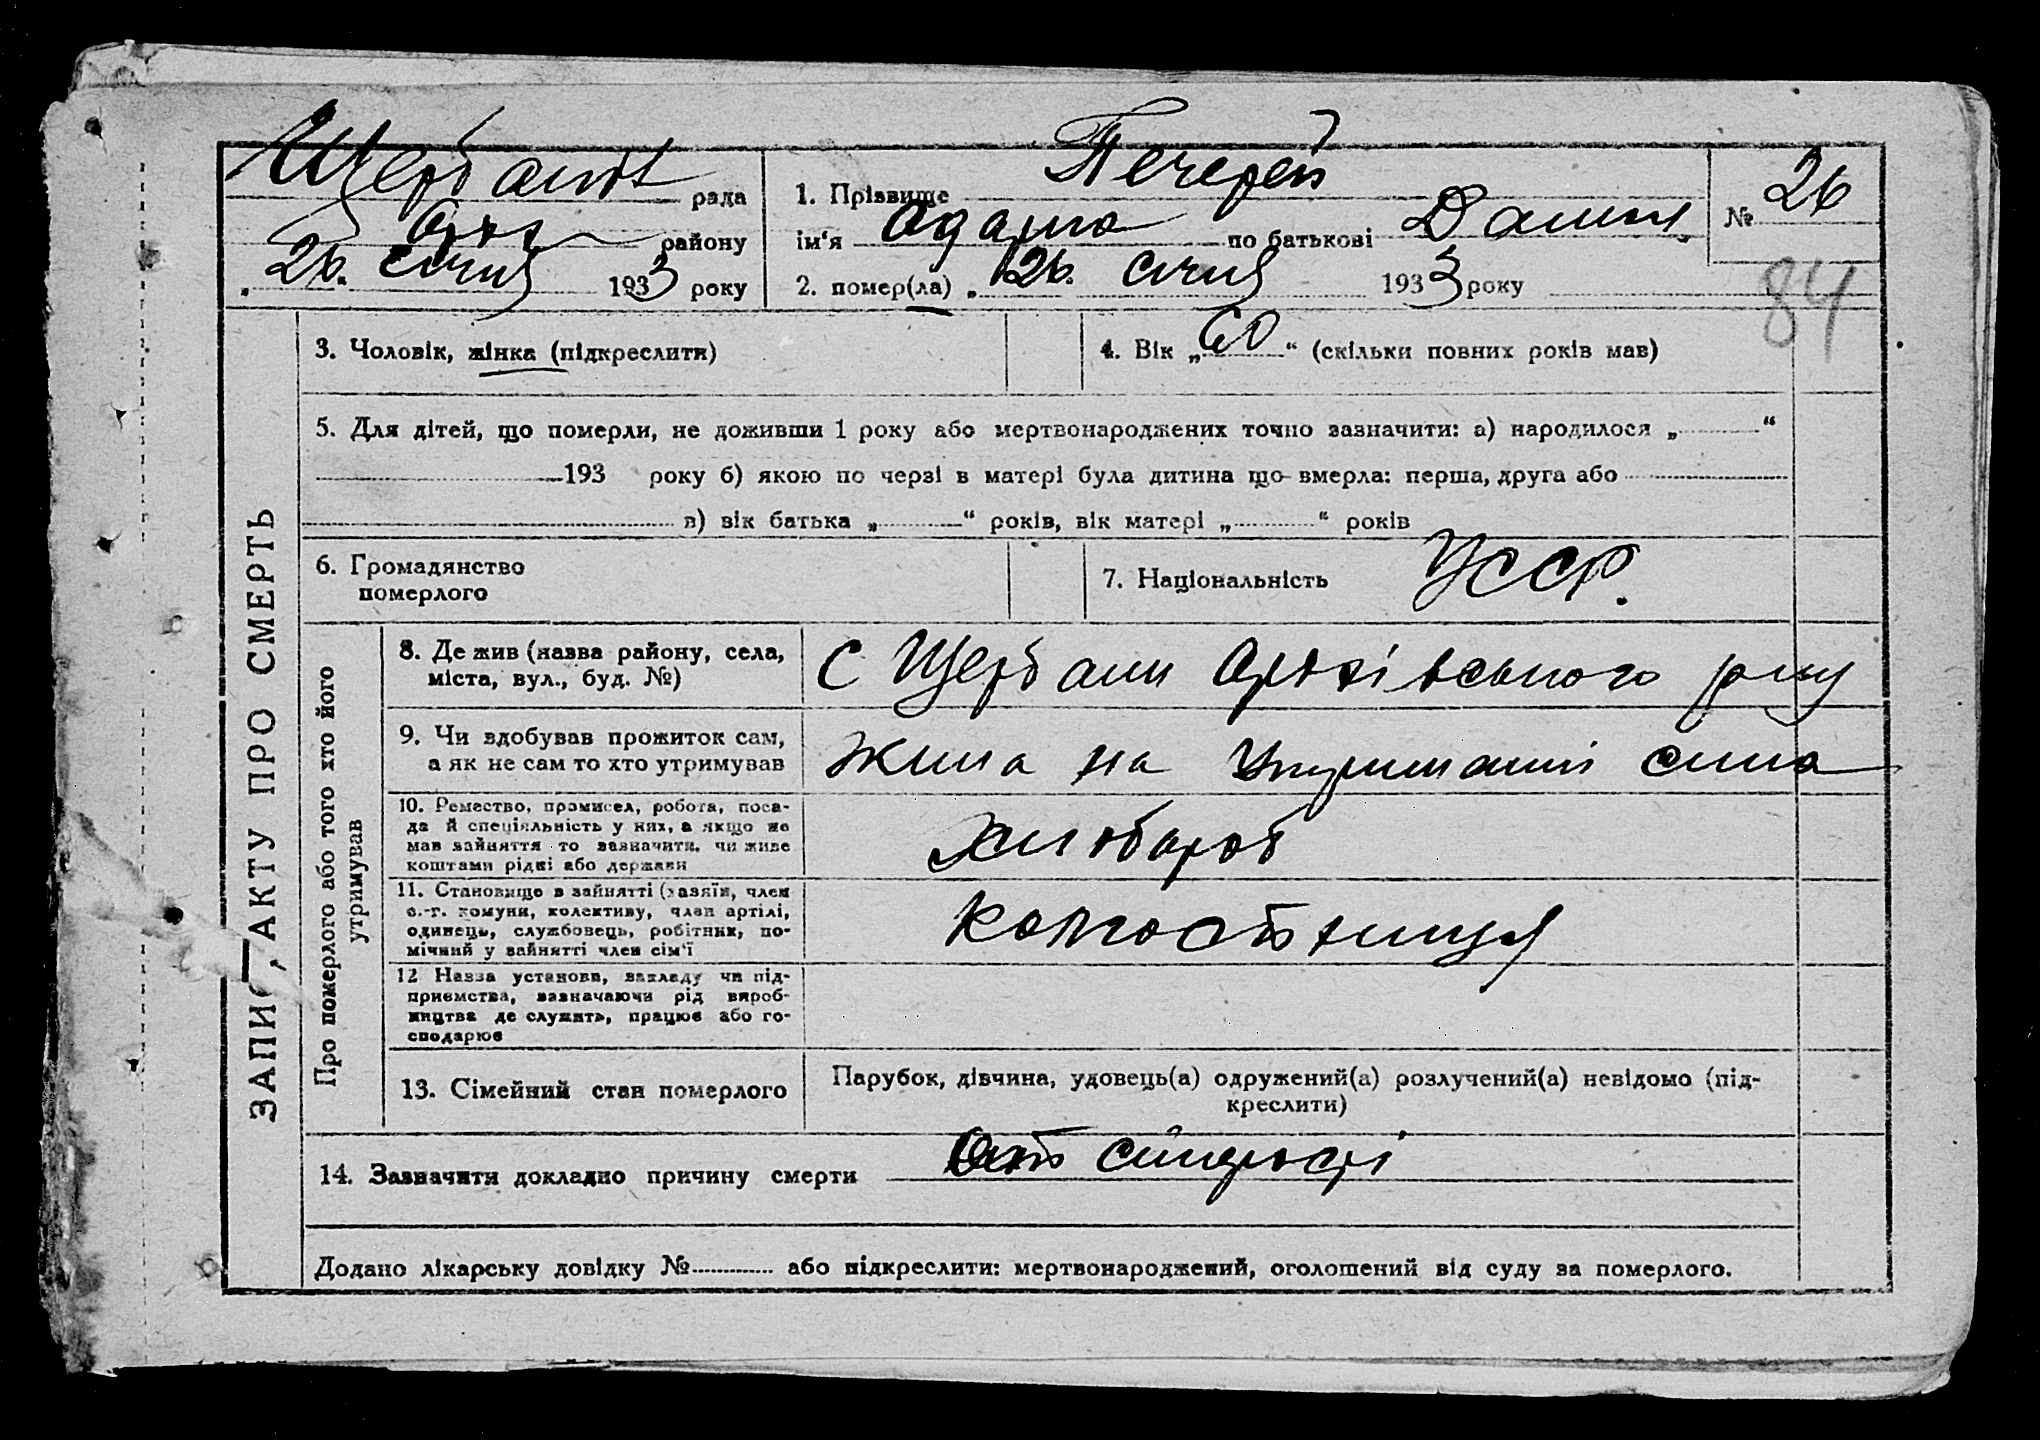 Щербанів рада
району
26. січня 1933 року
1. Прізвище Печерей
ім'я Одарка по батькові Данил.
2. помер(ла) „26. січня 1933 року
№ 26
84
ЗАПИС АКТУ ПРО СМЕРТЬ
3. Чоловік, жінка (підкреслити)
4. Вік „60“ (скільки повних років мав)
5. Для дітей, що померли, не доживши 1 року або мертвонароджених точно зазначити: а) народилося „ “
193 року б) якою по черзі в матері була дитина що вмерла: перша, друга або
в) вік батька „ “ років, вік матері „ “ років
6. Громадянство
померлого
7. Національність УССР.
Про померлого або того хто його
утримував
8. Де жив (назва району, села,
міста, вул., буд. №)
С Щербани
9. Чи здобував прожиток сам,
а як не сам то хто утримував
Жила на утриманні сина
10. Ремество, промисел, робота, поса-
да й спеціяльність у них, а якщо не
мав зайняття то зазначити, чи живе
коштами рідні або держави
Хлібороб
11. Становище в зайнятті (хазяїн, член
с.-г. комуни, колективу, член артілі,
одинець, службовець, робітник, по-
мічний у зайнятті член сім'ї
Колгоспниця
12 Назва установи, закладу чи під-
приємства, зазначаючи рід вироб-
ництва де служить, працює або го-
сподарює
13. Сімейний стан померлого
Парубок, дівчина, удовець(а) одружений(а) розлучений(а) невідомо (під-
креслити)
14. Зазначити докладно причину смерти
Додано лікарську довідку № або підкреслити: мертвонароджений, оголошений від суду за померлого.